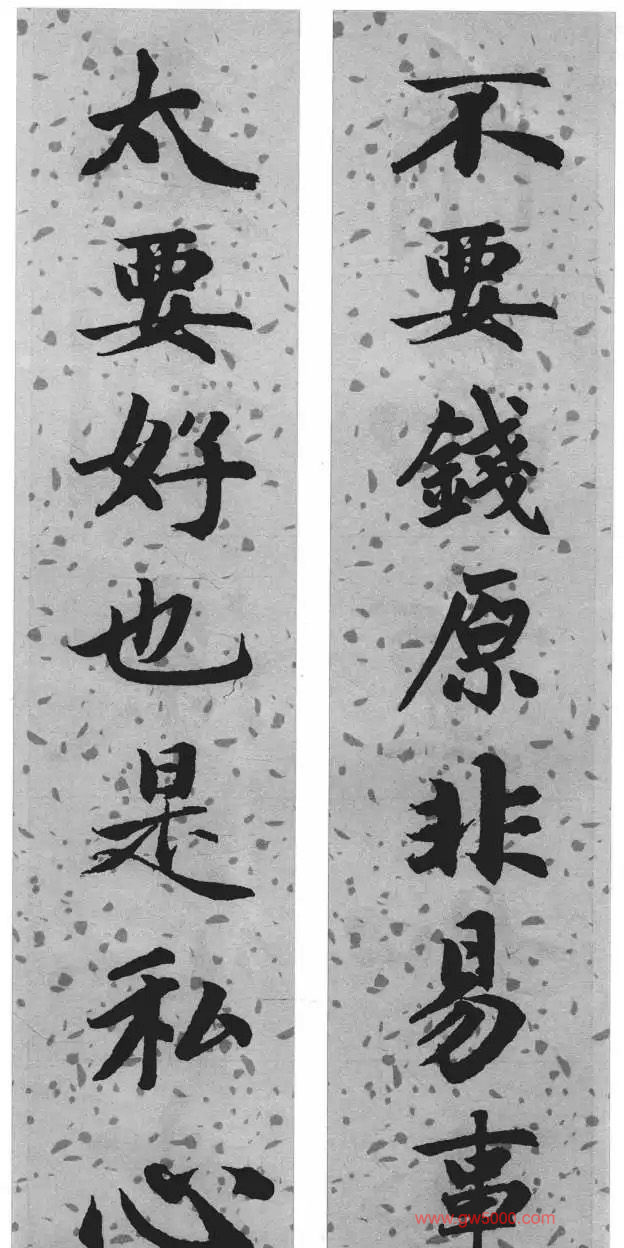 不要錢原非易事
太要好也是私心
www.gw5000.com